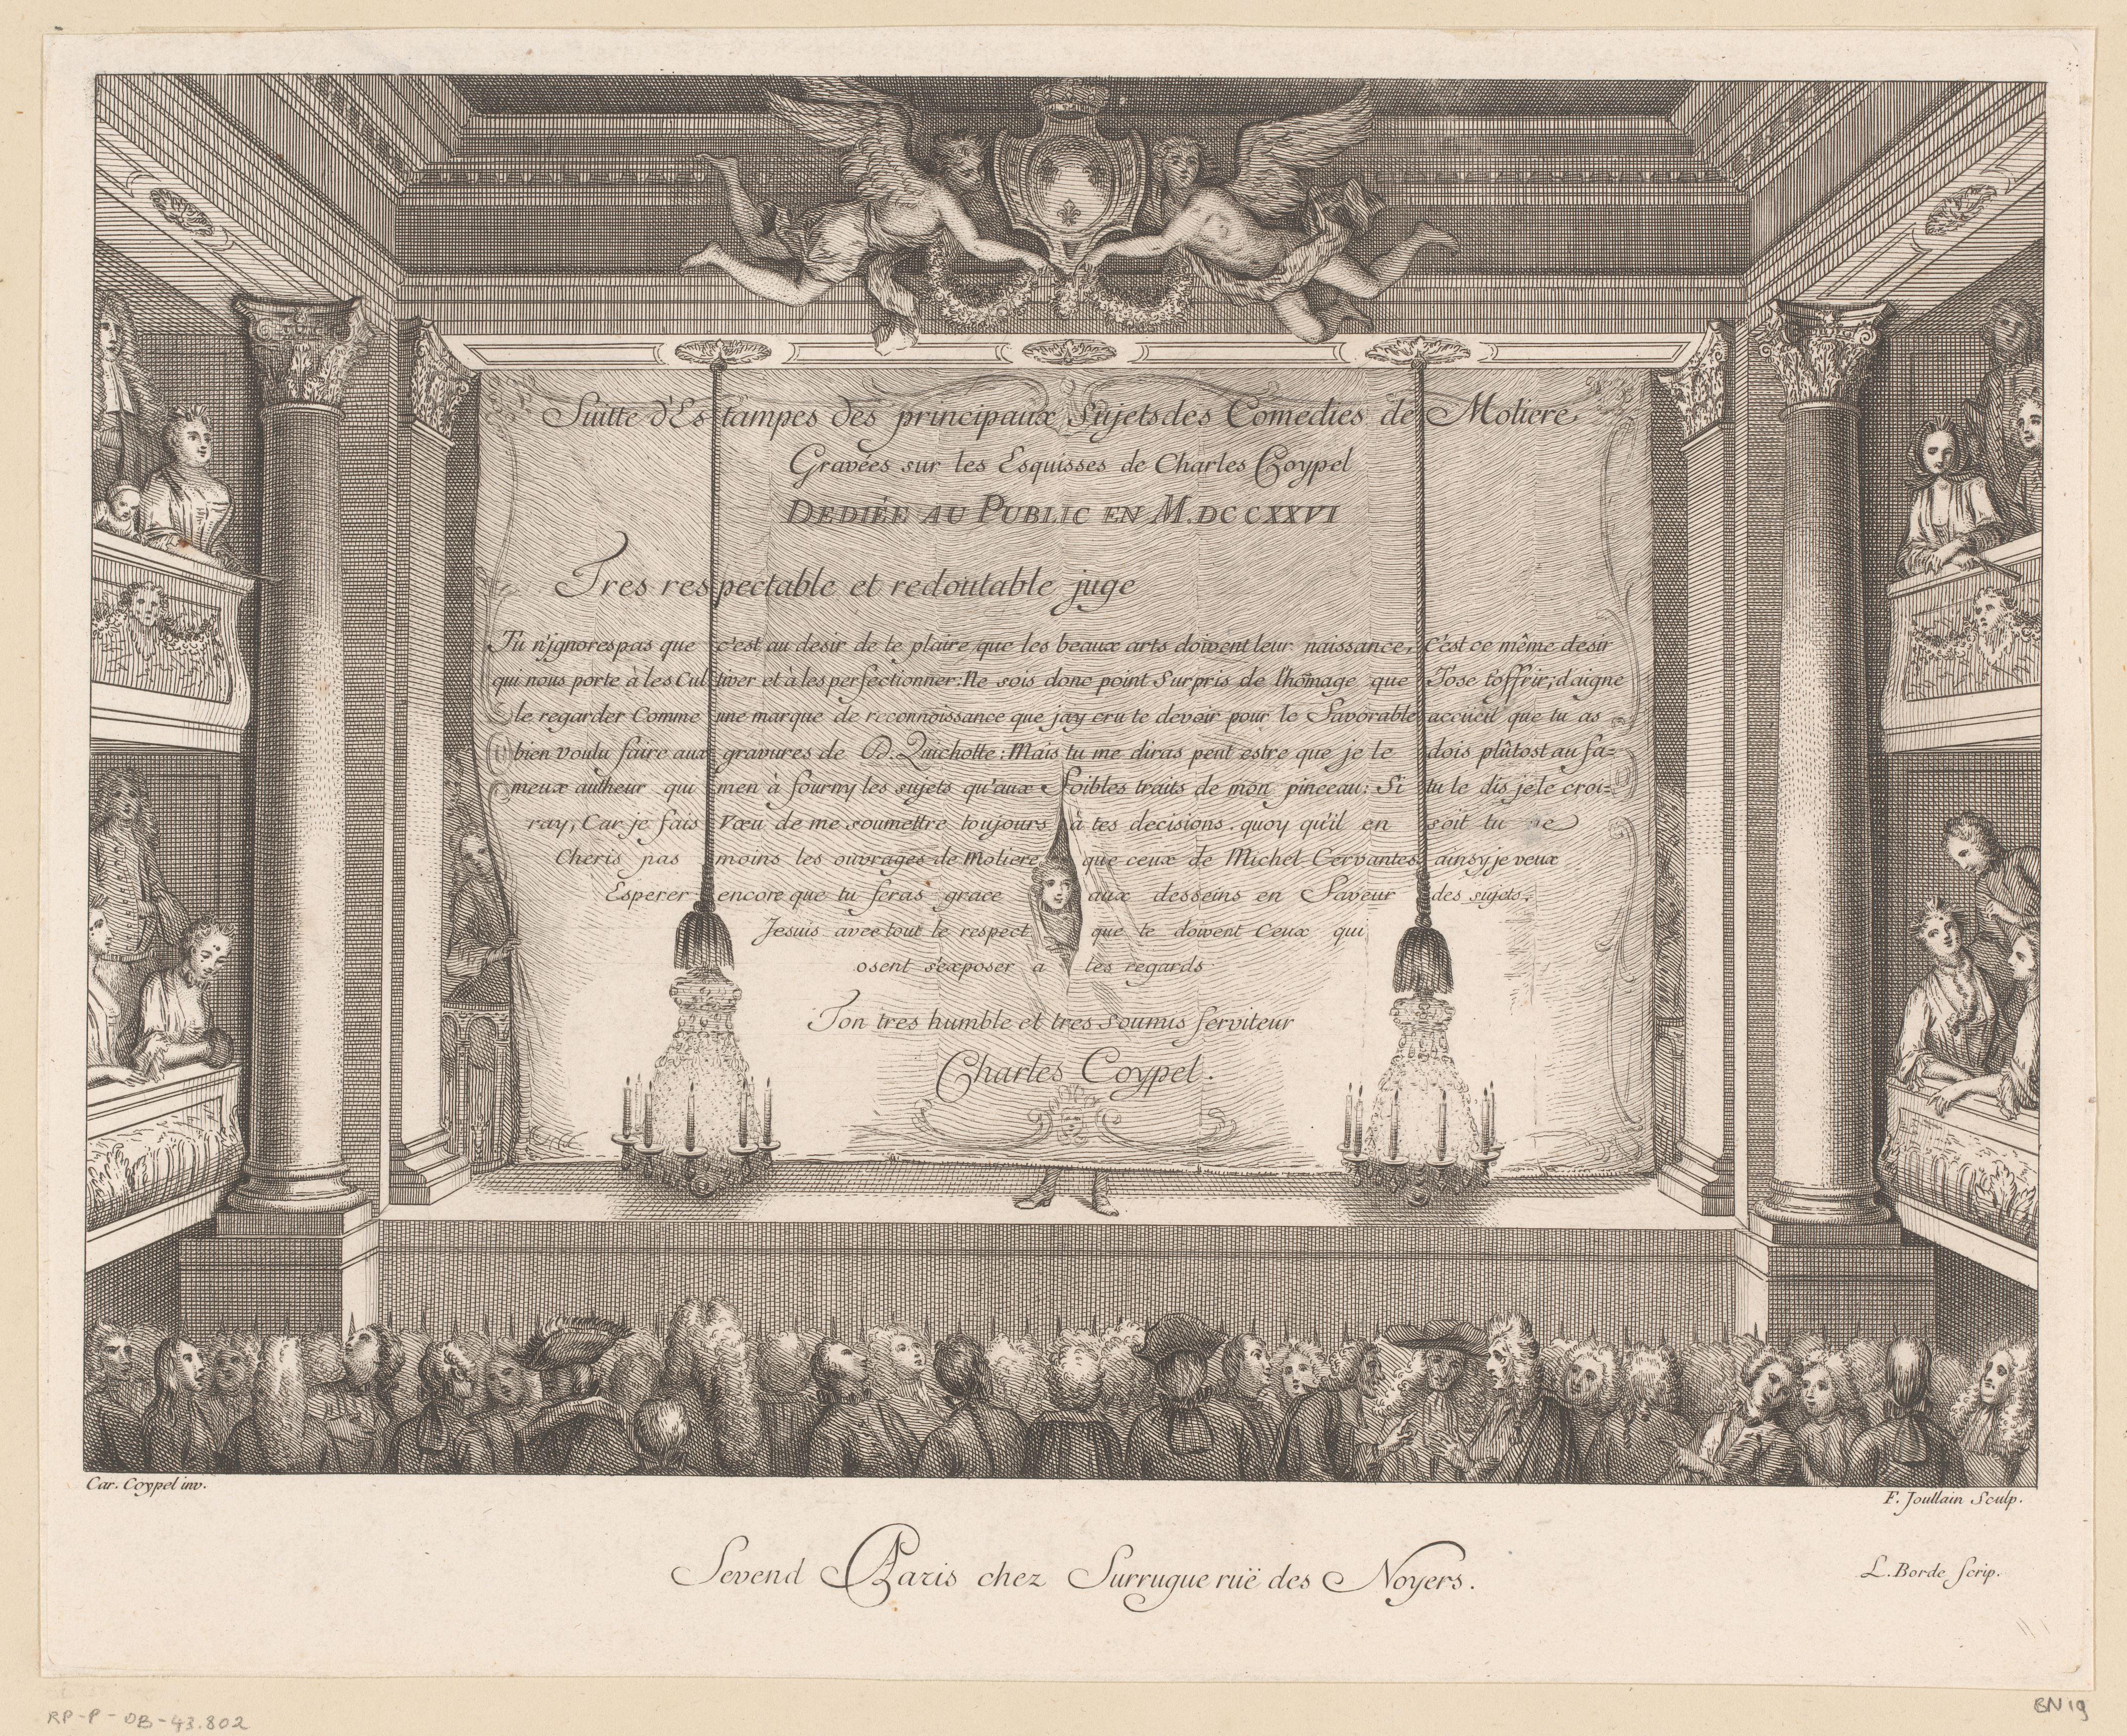 Suitte d'Estampes des principaux Sujets des Comedies de Moliere
Gravées sur les Esquisses de Charles Coypel
DEDIÉE AU PUBLIC EN M.DCCXXVI
Tres respectable et redoutable juge
Tu n'jgnores pas que c'est au desir de te plaire que les beaux arts doivent leur naissance, C'est ce même desir
qui nous porte à les Cultiver et à les perfectionner: Ne sois donc point Surpris de l'hõmage que J'ose t'offrir; daigne
le regarder Comme une marque de reconnoissance que jay cru te devoir pour le Favorable accueil que tu as
bien voulu faire aux gravures de D. Quichotte: Mais tu me diras peut estre que je le dois plûtost au fa=
meux autheur qui men à fourny les sujets qu'aux Foibles traits de mon pinceau: Si tu le dis je le croi=
ray, Car je fais Vœu de me soumettre toujours à tes decisions. quoy qu'il en soit tu ne
Cheris pas moins les ouvrages de Moliere que ceux de Michel Cervantes ainsy je veux
Esperer encore que tu feras grace aux desseins en Faveur des sujets.
Jesuis avec tout le respect que te doivent Ceux qui
osent s'exposer a tes regards
Ton tres humble et tres soumis serviteur
Charles Coypel.
Car. Coypel inv.
F. Joullain Sculp.
Sevend A Paris chez Surrugue ruë des Noyers.
L. Borde Scrip.
RP-P-OB-43.802
BN 19